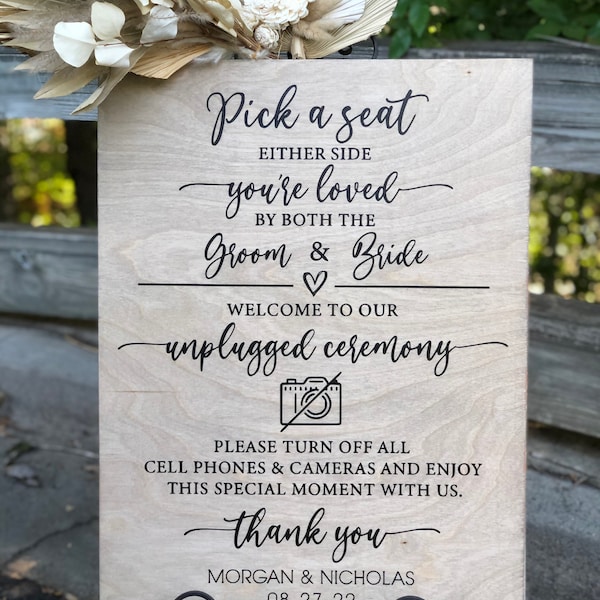 Pick a seat
EITHER SIDE
you're loved
BY BOTH THE
Groom & Bride
WELCOME TO OUR
unplugged ceremony
PLEASE TURN OFF ALL
CELL PHONES & CAMERAS AND ENJOY
THIS SPECIAL MOMENT WITH US.
thank you
MORGAN & NICHOLAS
08-27-22